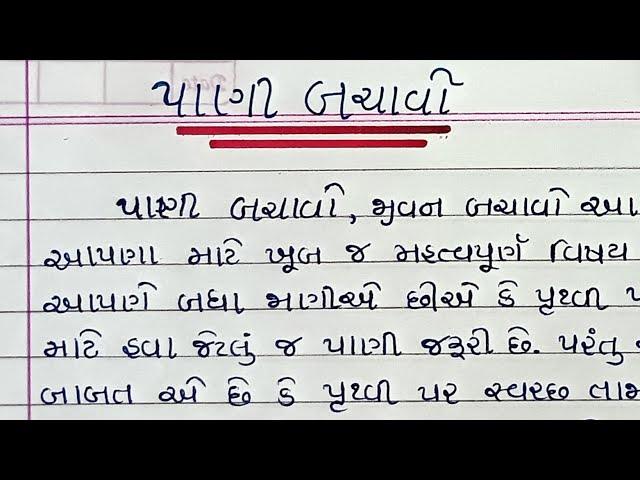 પાણી બચાવો
પાણી બચાવો, જીવન બચાવો આ
આપણા માટે ખૂબ જ મહત્વપૂર્ણ વિષય
આપણે બધા જાણીએ છીએ કે પૃથ્વી પ
માટે હવા જેટલું જ પાણી જરૂરી છે. પરંતુ
બાબત એ છે કે પૃથ્વી પર સ્વચ્છ તાજ